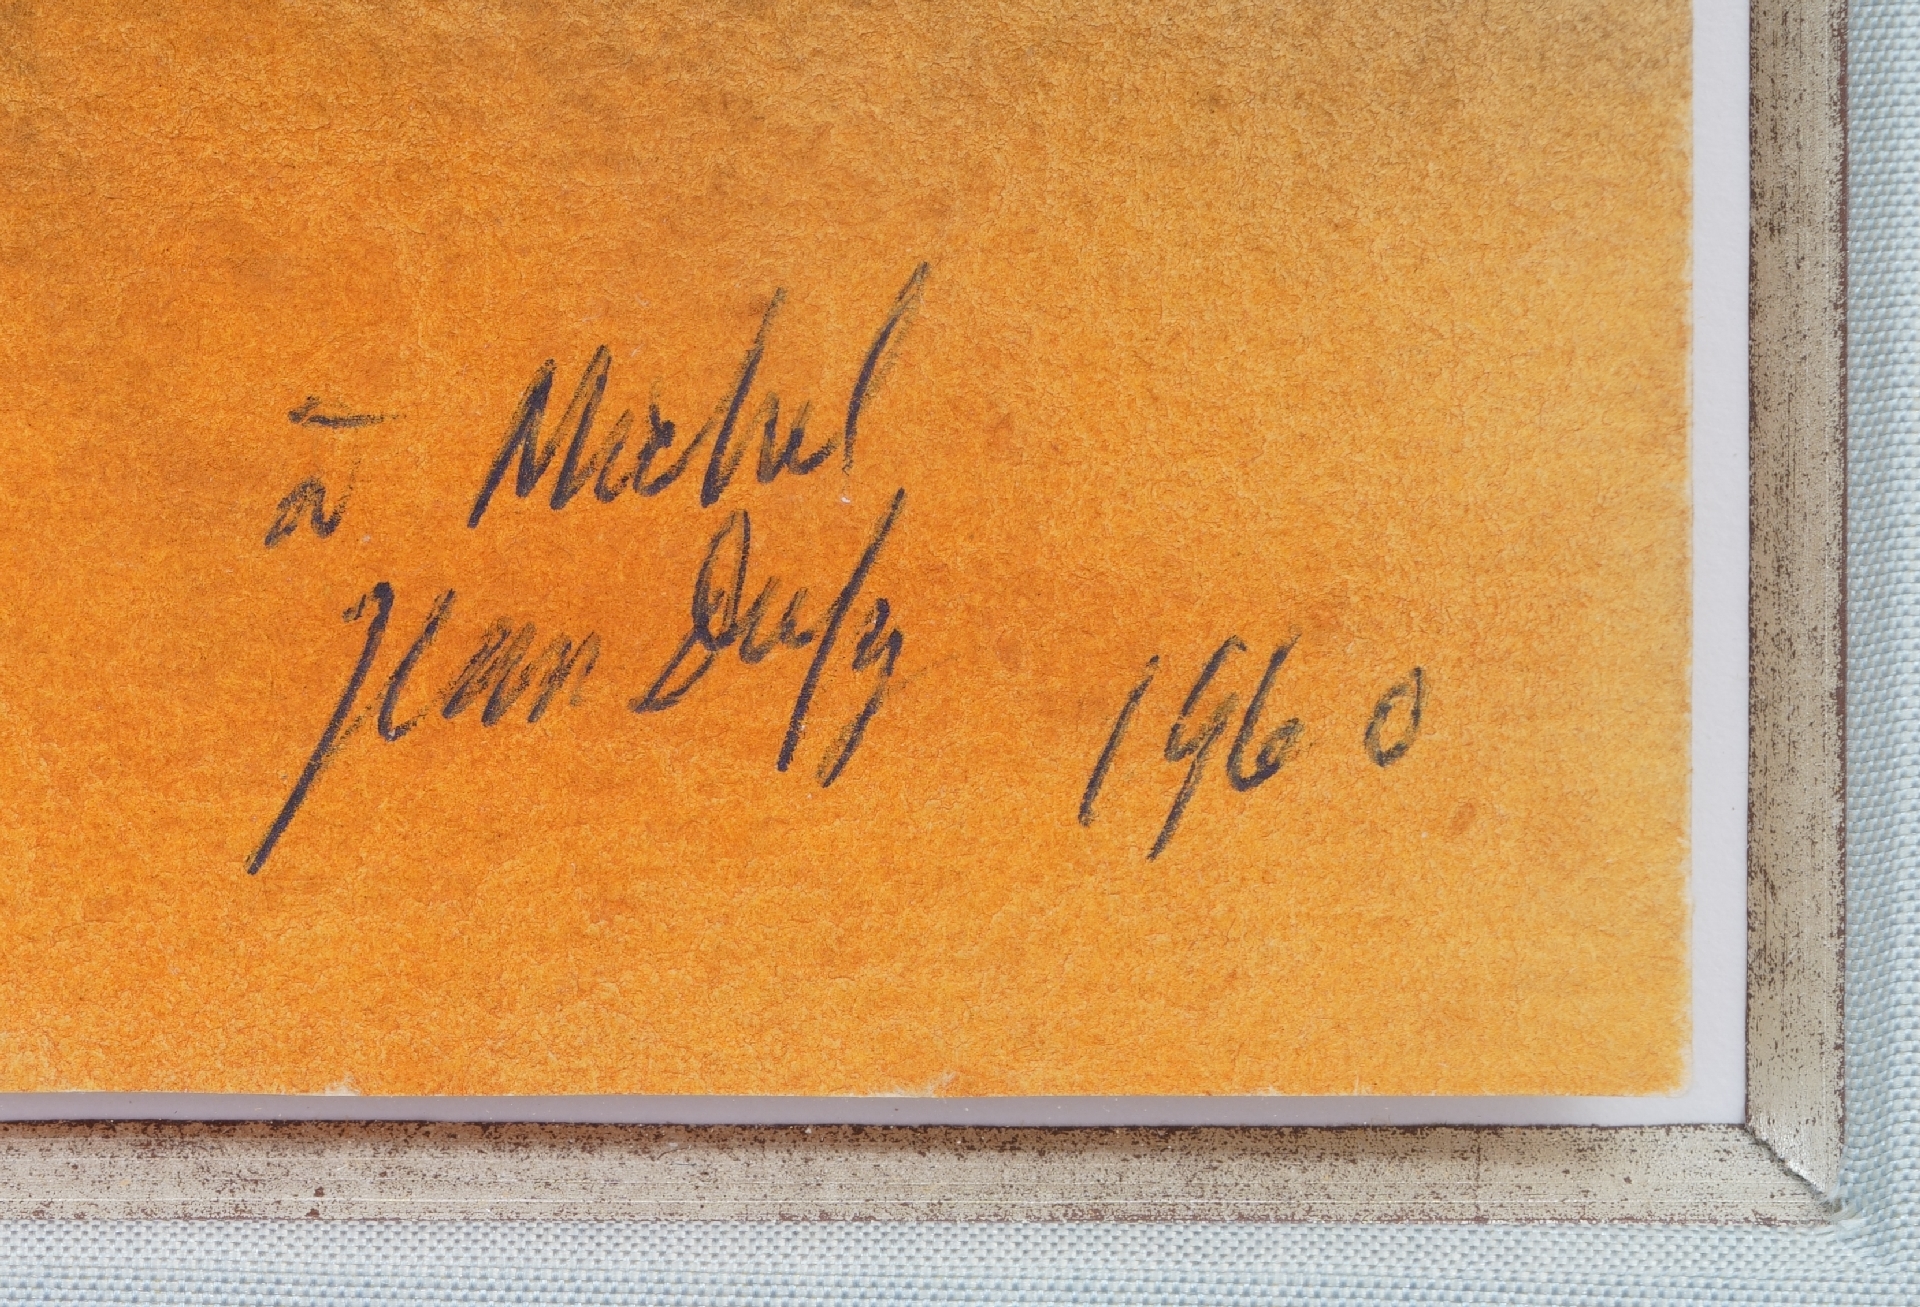 à Michel
Jean Dufy 1960